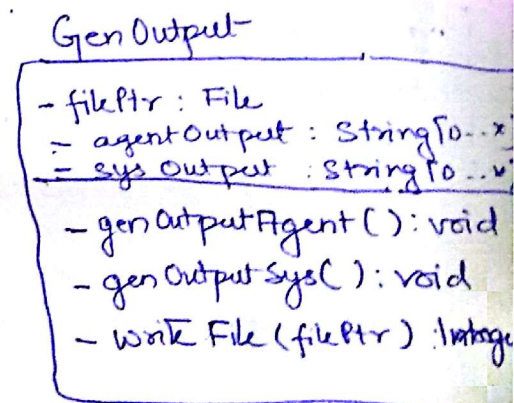 Gen Output
- filePtr : File
- agentOutput : String[0..x]
- sys Output : String[0..
- genOutputAgent() : void
- genOutputSys() : void
- write File (filePtr) : Intege